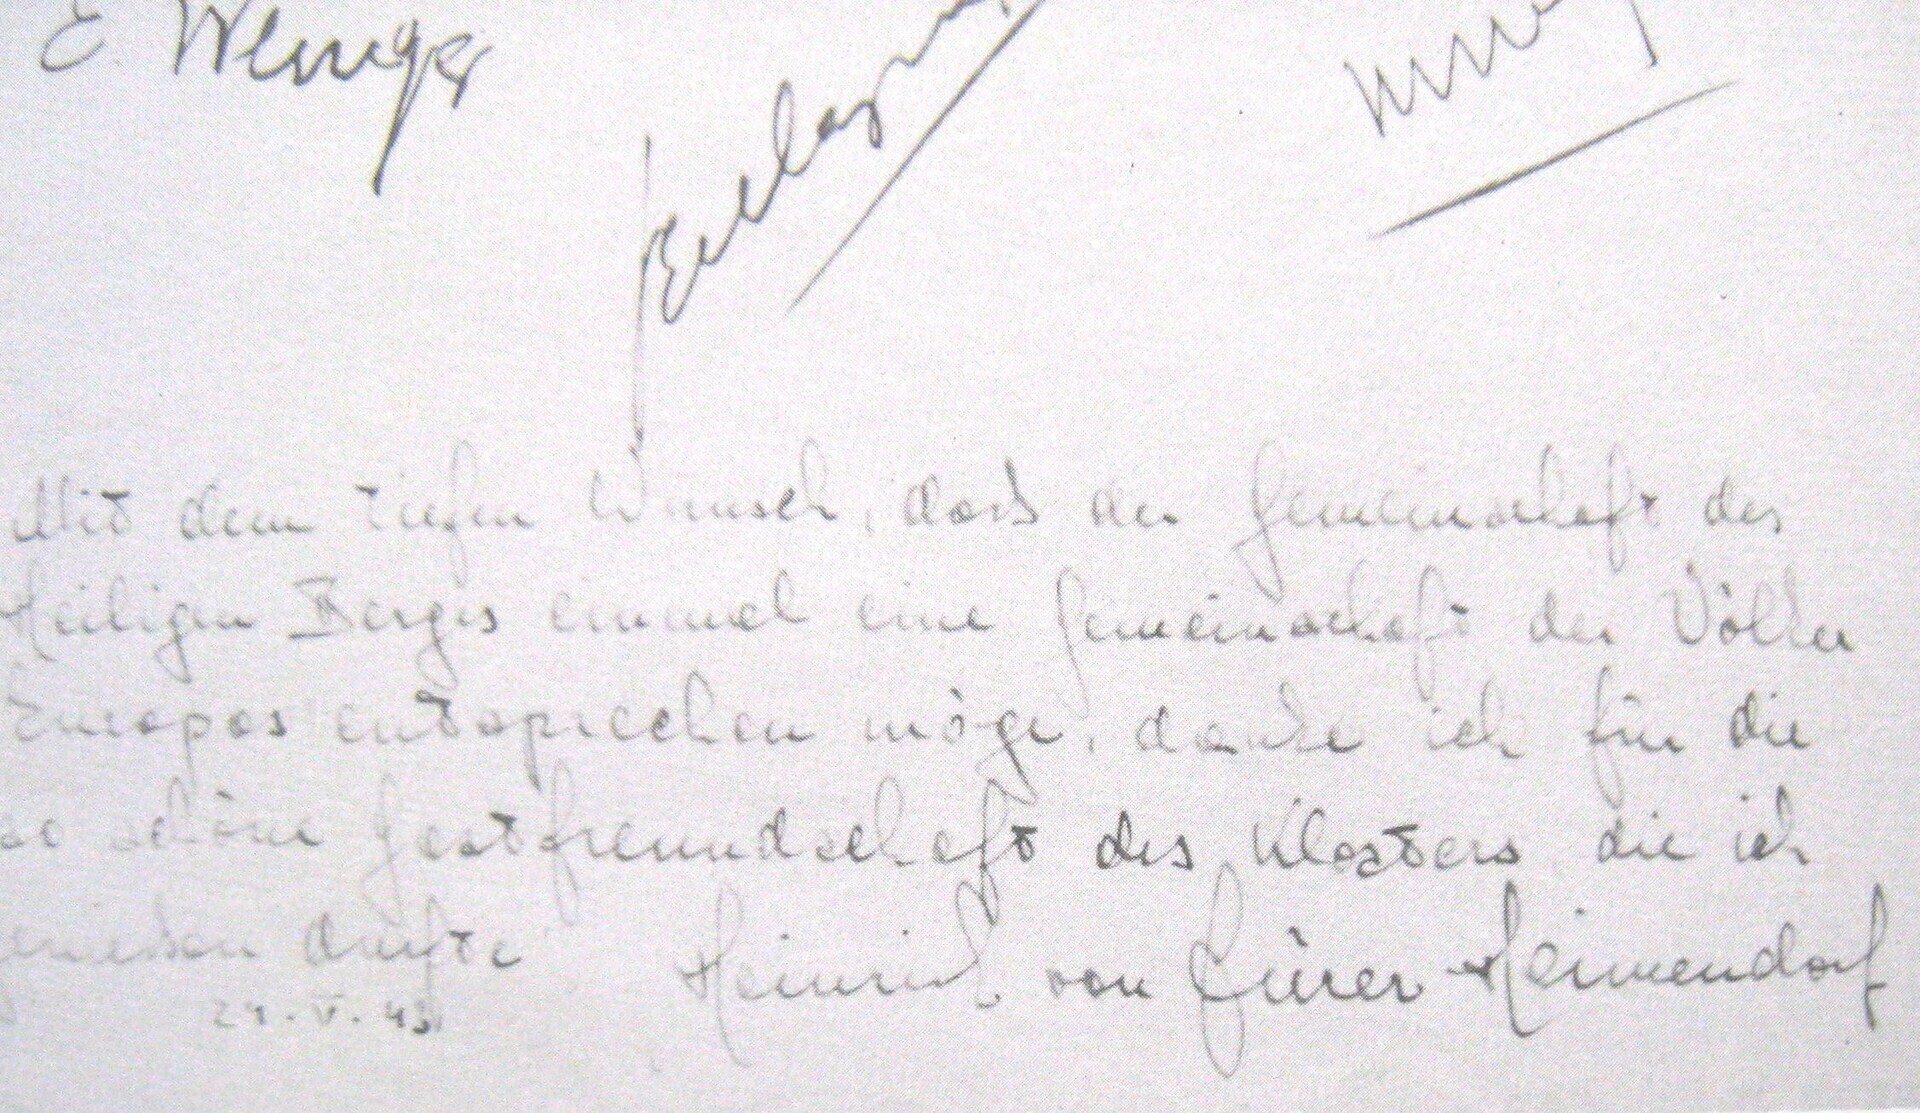 E. Weniger
Mit dem tiefen Wunsch, dass der Gemeinschaft des
Heiligen Berges einmal eine Gemeinschaft der Völker
Europas entsprechen möge, danke ich für die
so schöne Gastfreundschaft des Klosters die ich
durfte Heinrich von Fürer Heimendorf
V. 43